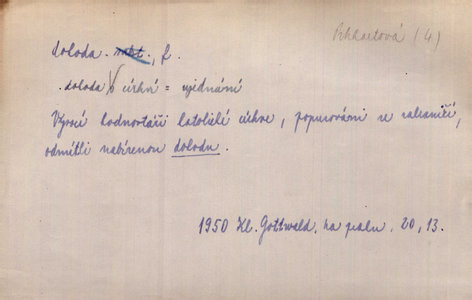 Ekhartová (4)
doloda . f.
doloda církví = ujednání
Vysocí hodnostáři katolické církve, popuzováni ze zahraničí,
odmítli nabízenou dolodu.
1950 Kl. Gottwald, na prahu. 20, 13.